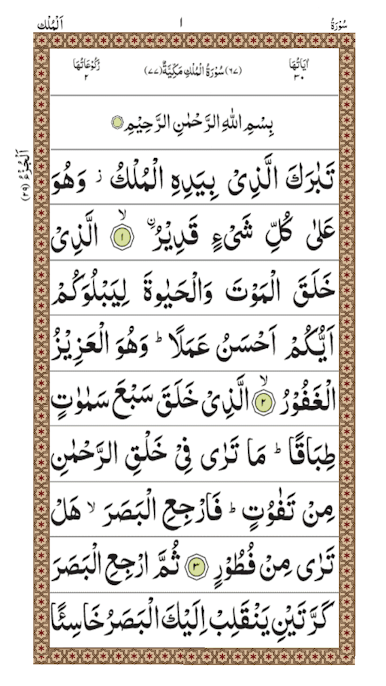 سُوْرَةُ ١ اَلْمُلْك
اٰيَاتُهَا ٣٠ (٦٧) سُوْرَةُ الْمُلْكِ مَكِّيَّةٌ (٧٧) رُكُوْعَاتُهَا ٢
بِسْمِ اللّٰهِ الرَّحْمٰنِ الرَّحِيْمِ
تَبٰرَكَ الَّذِىْ بِيَدِهِ الْمُلْكُ ز وَهُوَ
عَلٰى كُلِّ شَىْءٍ قَدِيْرُ ۙ ن ١ الَّذِىْ
خَلَقَ الْمَوْتَ وَالْحَيٰوةَ لِيَبْلُوَكُمْ
اَيُّكُمْ اَحْسَنُ عَمَلًا ؕ وَهُوَ الْعَزِيْزُ
الْغَفُوْرُ ۙ ٢ الَّذِىْ خَلَقَ سَبْعَ سَمٰوٰتٍ
طِبَاقًا ؕ مَا تَرٰى فِىْ خَلْقِ الرَّحْمٰنِ
مِنْ تَفٰوُتٍ ؕ فَارْجِعِ الْبَصَرَ ۙ هَلْ
تَرٰى مِنْ فُطُوْرٍ ٣ ثُمَّ ارْجِعِ الْبَصَرَ
كَرَّتَيْنِ يَنْقَلِبْ اِلَيْكَ الْبَصَرُ خَاسِئًا
اَلْجُزْءُ (٢٩)